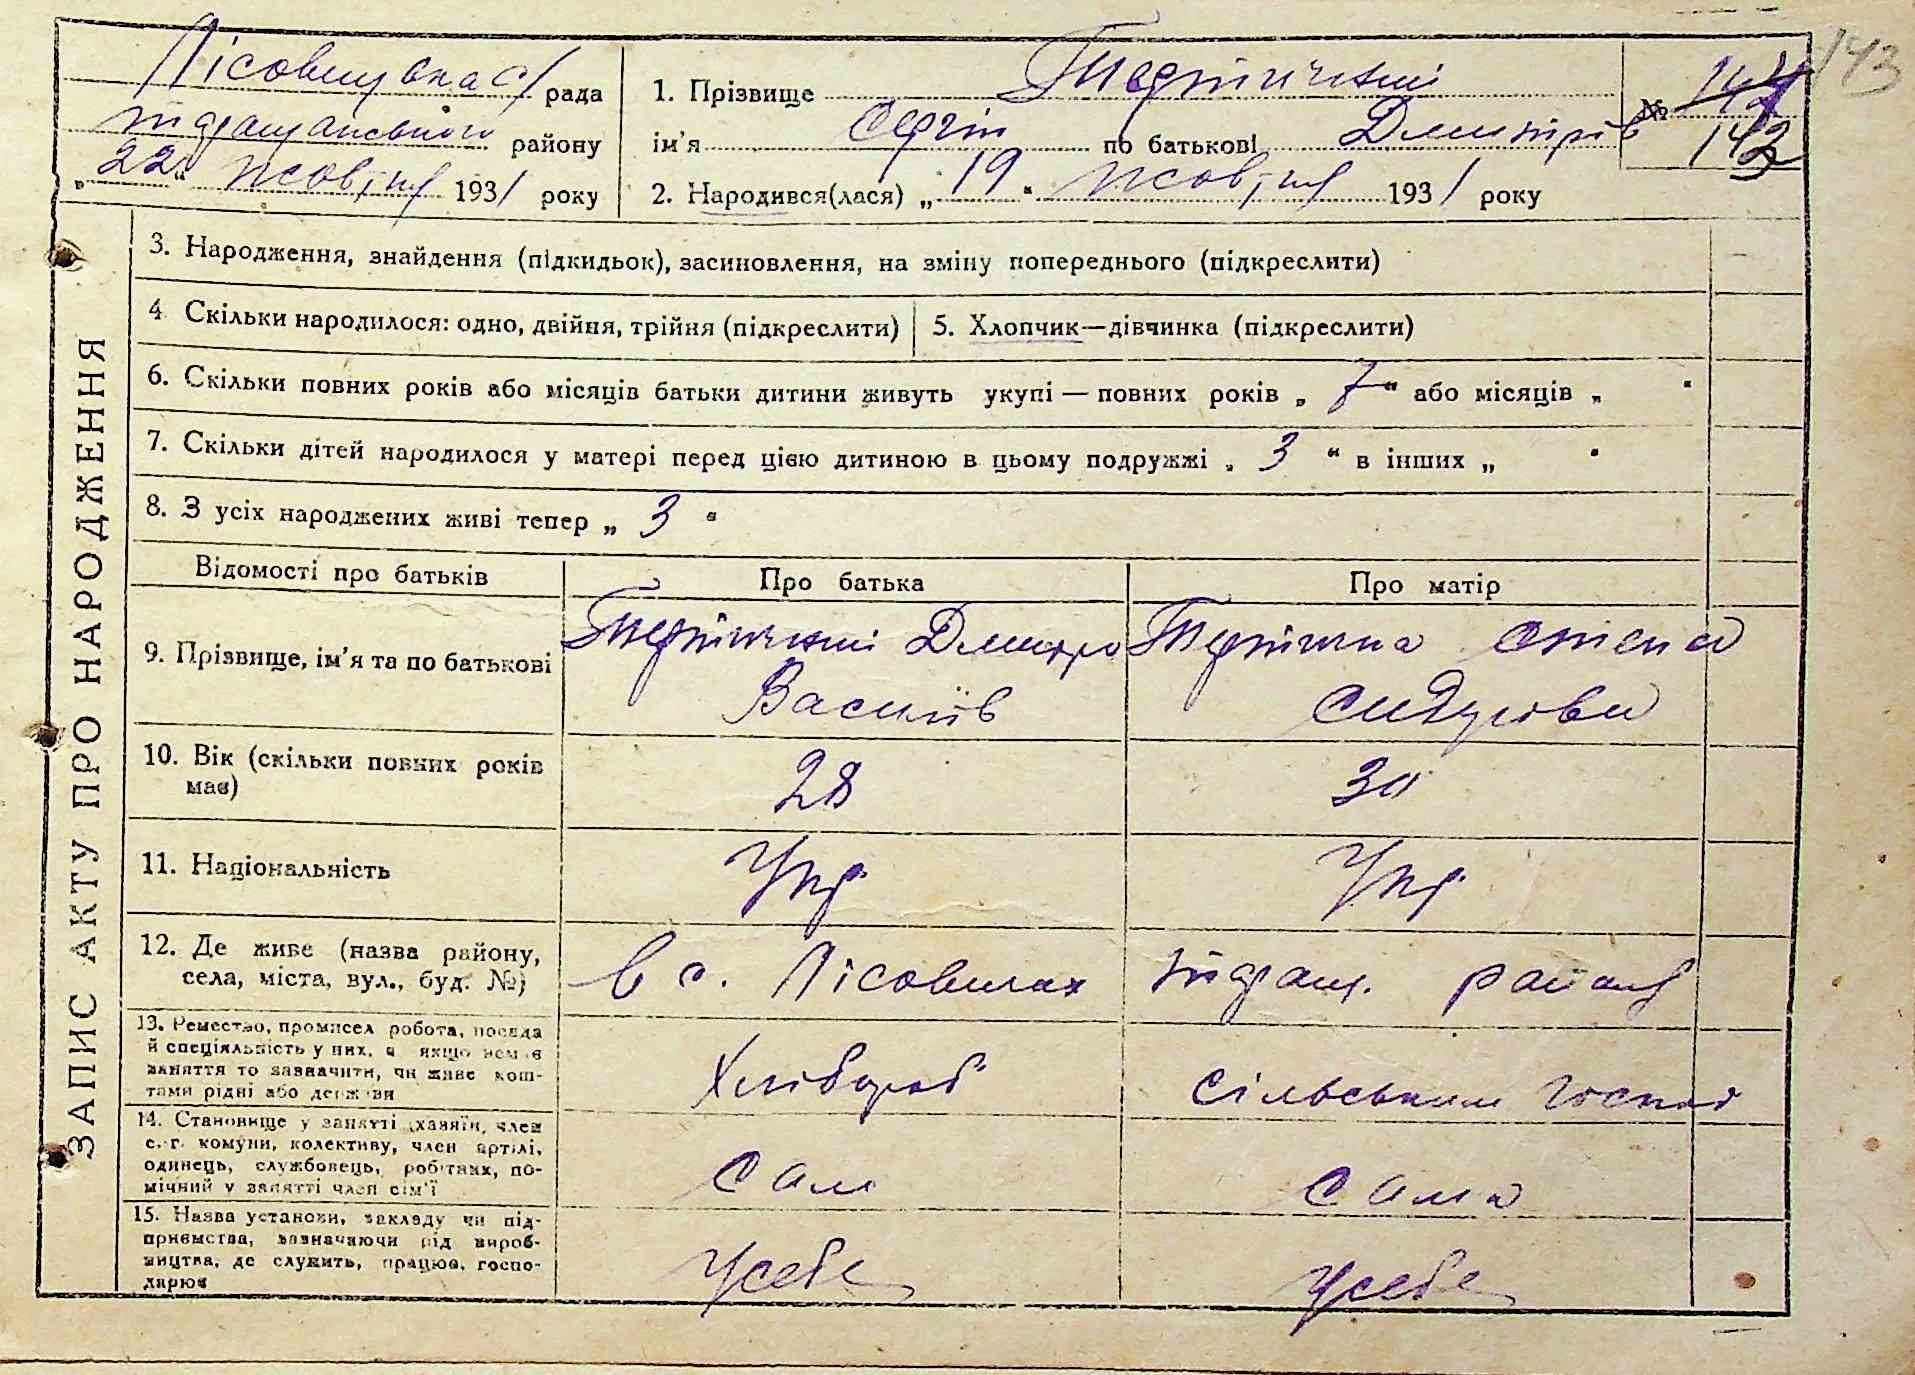 Лісовицька с/рада
Таращанського району
„22" жовтня 1931 року
1. Прізвище
ім'я Сергій по батькові Дмитрів
2. Народився(лася) „19" жовтня 1931 року
№ 142
143
ЗАПИС АКТУ ПРО НАРОДЖЕННЯ
3. Народження, знайдення (підкидьок), засиновлення, на зміну попереднього (підкреслити)
4 Скільки народилося: одно, двійня, трійня (підкреслити)
5. Хлопчик—дівчинка (підкреслити)
6. Скільки повних років або місяців батьки дитини живуть укупі — повних років „ 7 " або місяців „ "
7. Скільки дітей народилося у матері перед цією дитиною в цьому подружжі „ 3 " в інших „ "
8. З усіх народжених живі тепер „ 3 "
Відомості про батьків
Про батька
Про матір
9. Прізвище, ім'я та по батькові
Дмитро
Василів
Сидорова
10. Вік (скільки повних років
має)
28
30
11. Національність
Укр.
Укр.
12. Де живе (назва району,
села, міста, вул., буд. №)
в с. Лісовичах
Таращ. району
13. Ремество, промисел робота, посада
й спеціяльність у них, а якщо немає
заняття то зазначити, чи живе кош-
тами рідні або держави
Хлібороб
сільським господ
14. Становище у занятті (хазяїн, член
с.-г. комуни, колективу, член артілі,
одинець, службовець, робітник, по-
мічний у занятті член сім'ї
сам
сама
15. Назва установи, закладу чи під-
приємства, зазначаючи рід вироб-
ництва, де служить, працює, госпо-
дарює
У себе
У себе